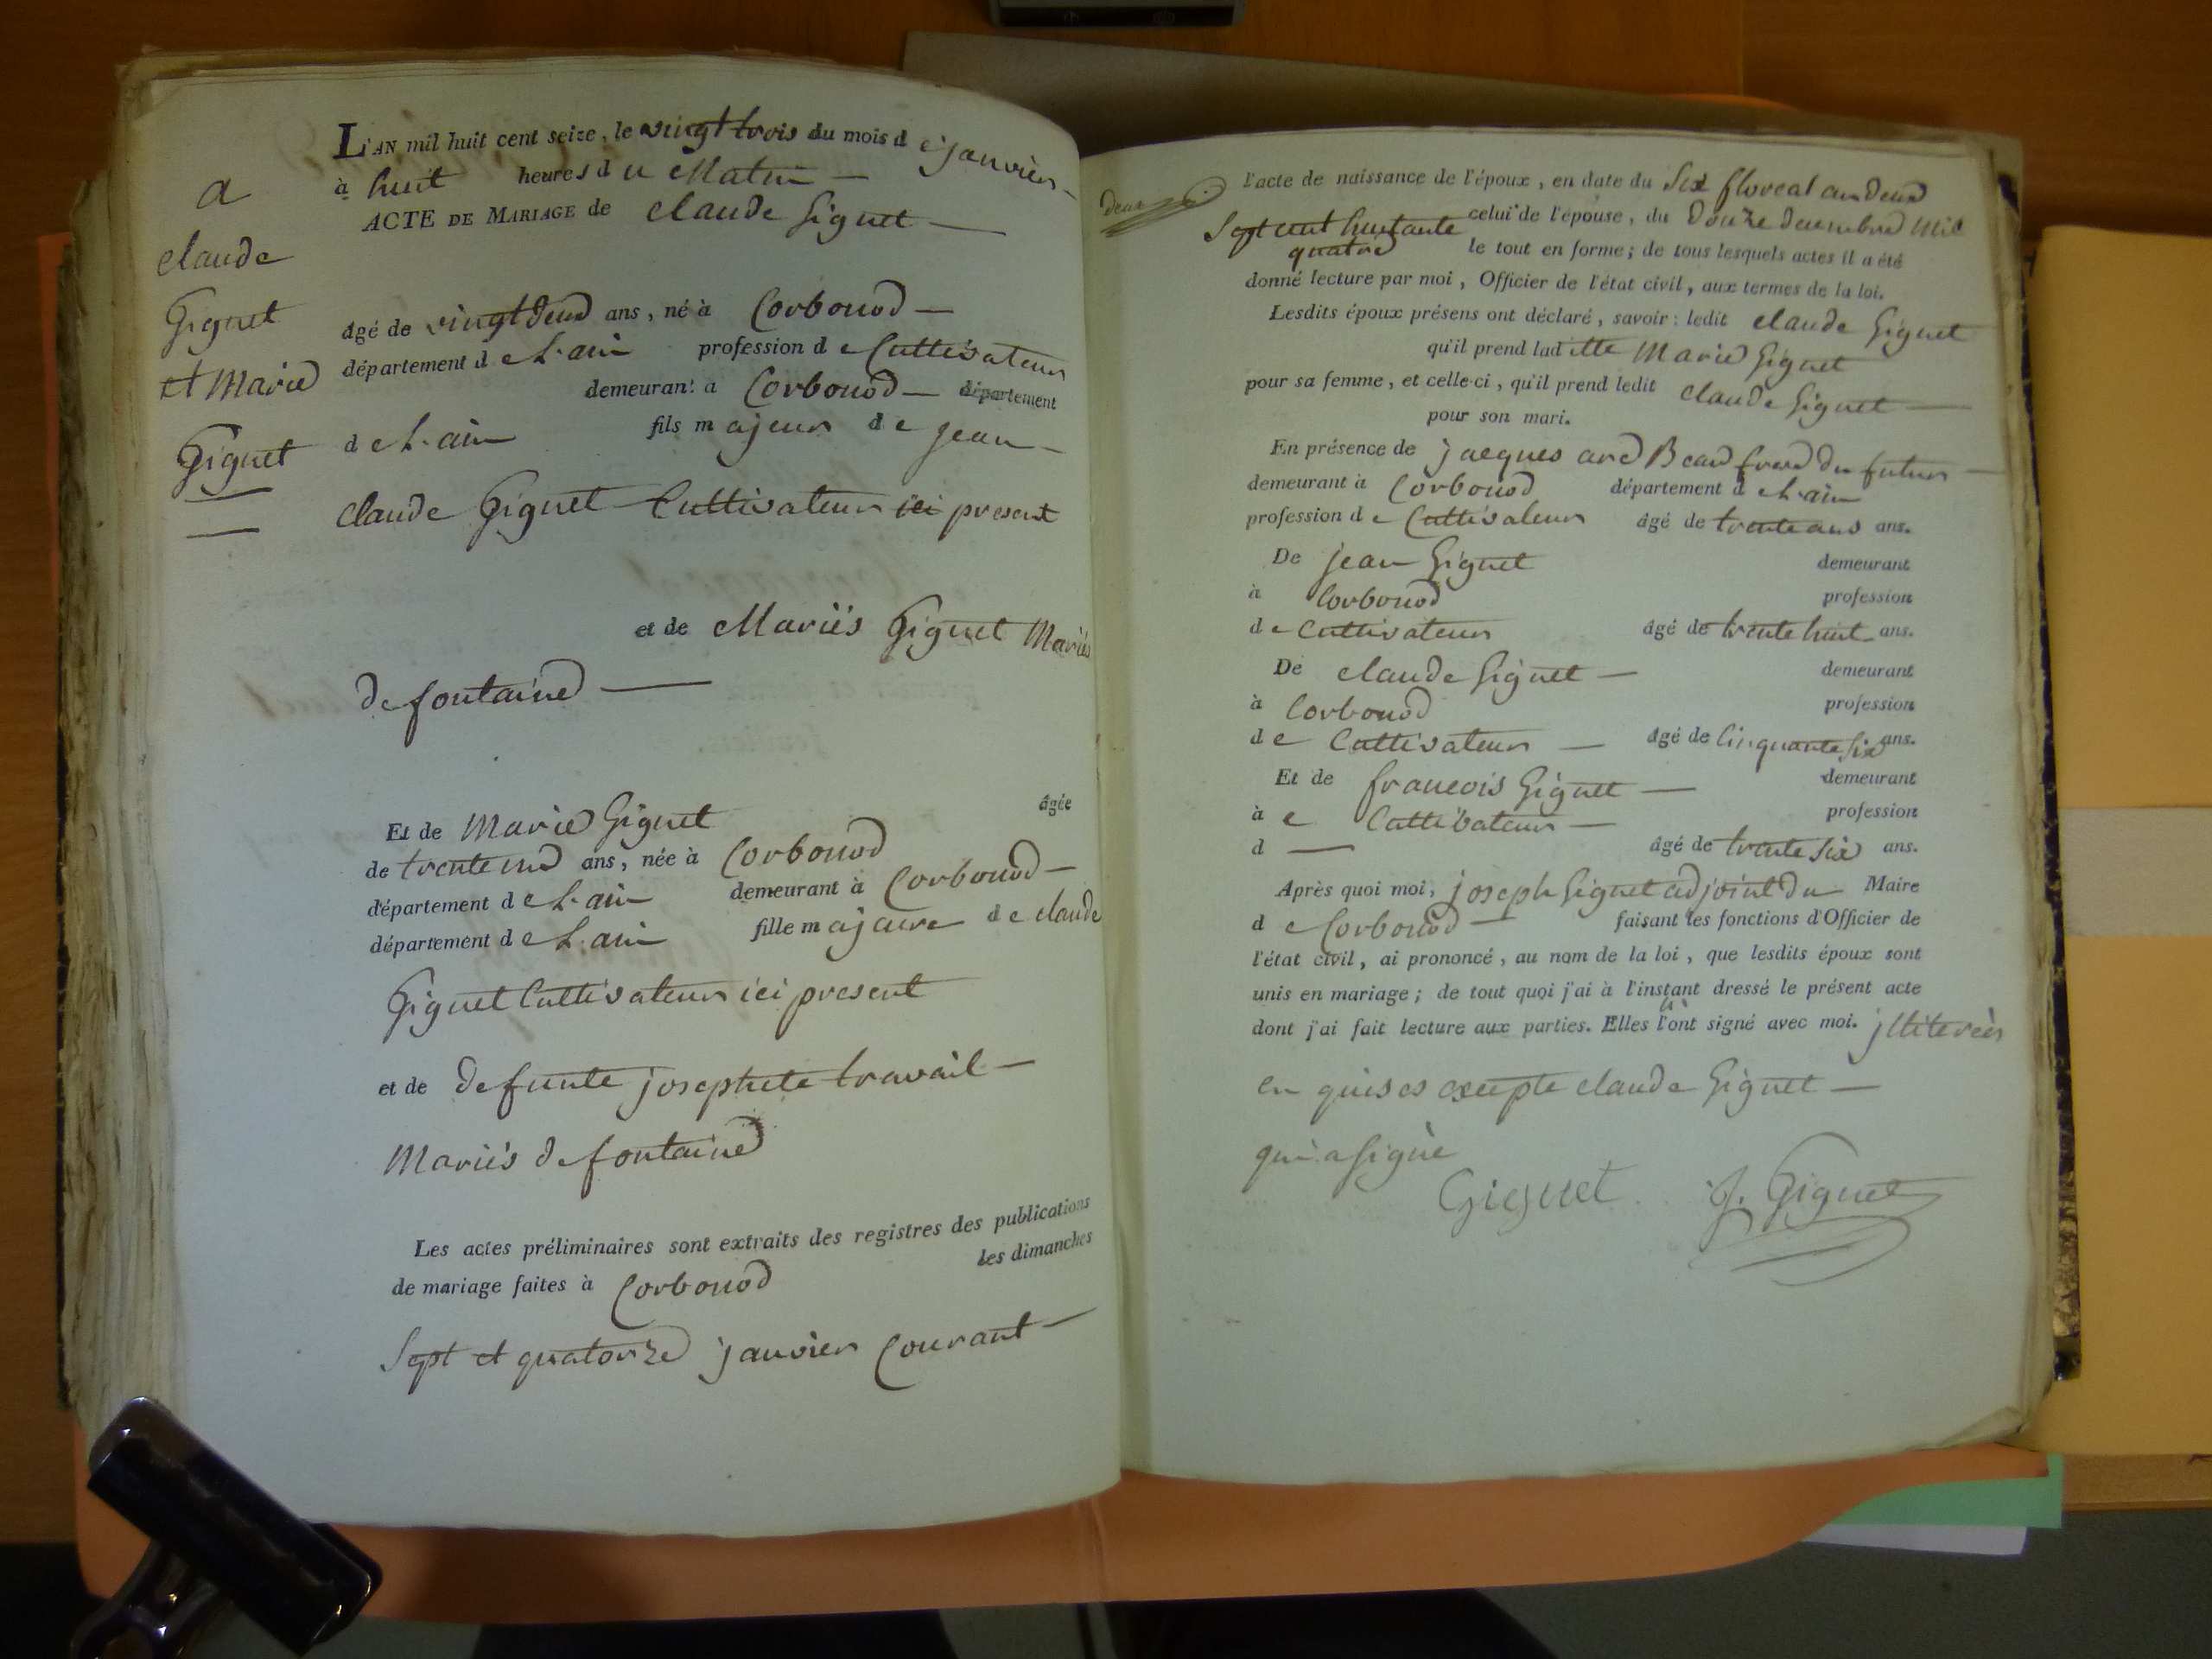 a
claude
Giguet
et Marie
Giguet
L'AN mil huit cent seize, le vingt trois du mois de janvier
à huit heures du Matin —
ACTE DE MARIAGE de claude Giguet —
âgé de vingt deux ans, né à Corbonod —
département de L'ain profession de Cultivateur
demeurant a Corbonod — département
de L'ain fils majeur de jean —
claude Giguet Cultivateur ici present
et de Mariès Giguet Mariès
de fontaine —
Et de Marie Giguet âgée
de trente un ans, née à Corbonod
département de L'ain demeurant à Corbonod —
département de L'ain fille majeure de claude
Giguet Cultivateur ici present
et de defunte josephete travail —
Mariès de fontaine
Les actes préliminaires sont extraits des registres des publications
de mariage faites à Corbonod les dimanches
Sept et quatorze janvier Courant —
deux
l'acte de naissance de l'époux, en date du Six floreal an deux
celui de l'épouse, du Douze decembre mil
Sept cent huitante
quatre le tout en forme; de tous lesquels actes il a été
donné lecture par moi, Officier de l'état civil, aux termes de la loi.
Lesdits époux présens ont déclaré, savoir: ledit claude Giguet
qu'il prend laditte Marie Giguet
pour sa femme, et celle-ci, qu'il prend ledit claude Giguet —
pour son mari.
En présence de jacques Beau frere du futur —
demeurant à Corbonod département de L'ain
profession de Cultivateur âgé de trente ans ans.
De jean Giguet demeurant
à Corbonod profession
de Cultivateur âgé de trente huit ans.
De claude Giguet — demeurant
à Corbonod profession
de Cultivateur — âgé de Cinquante Six ans.
Et de francois Giguet — demeurant
à e Cultivateur — profession
d — âgé de trente Six ans.
Après quoi moi, joseph Giguet adjoint du Maire
de Corbonod — faisant les fonctions d'Officier de
l'état civil, ai prononcé, au nom de la loi, que lesdits époux sont
unis en mariage; de tout quoi j'ai à l'instant dressé le présent acte
dont j'ai fait lecture aux parties. Elles l'ont signé avec moi. jlliterès
en quises exepte claude Giguet —
qui a signè
Giguet J. Giguet